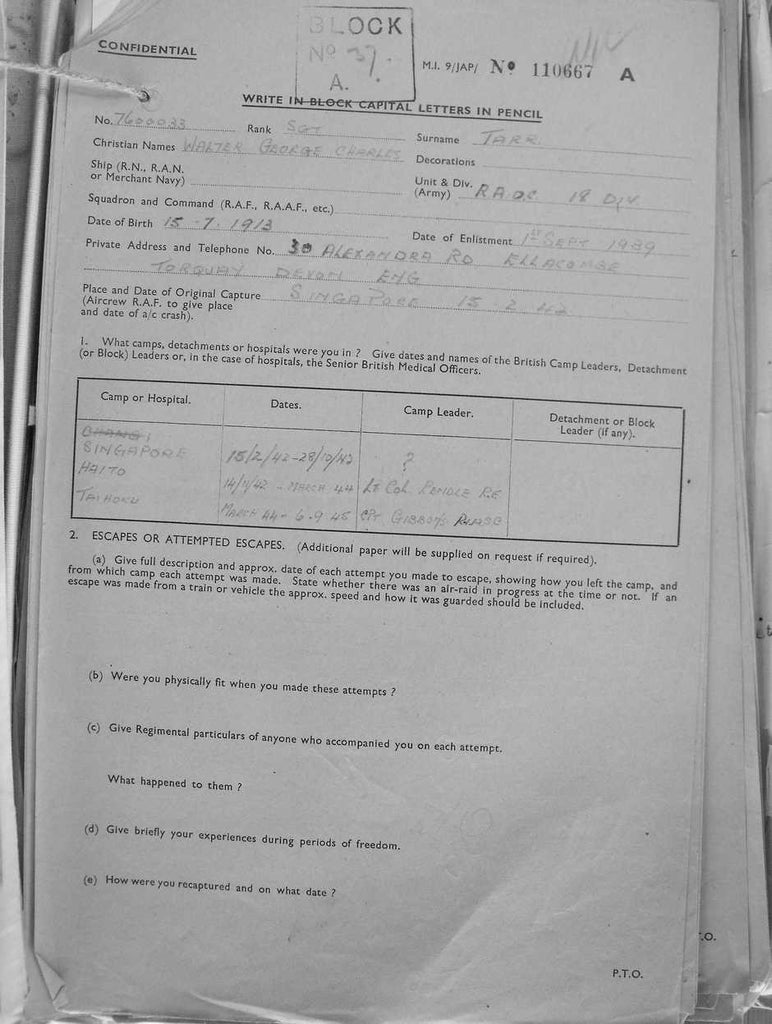 BLOCK
Nº 37.
A.
CONFIDENTIAL
M.I. 9/JAP/ Nº 110667 A
WRITE IN BLOCK CAPITAL LETTERS IN PENCIL
No. 7600033 Rank SGT Surname TARR
Christian Names WALTER GEORGE CHARLES Decorations
Ship (R.N., R.A.N.
or Merchant Navy)
Unit & Div.
(Army) R.A.O.C. 18 DIV
Squadron and Command (R.A.F., R.A.A.F., etc.)
Date of Birth 15 - 7. 1913 Date of Enlistment 1ST SEPT 1939
Private Address and Telephone No. 30 ALEXANDRA RD ELLACOMBE
TORQUAY DEVON ENG
Place and Date of Original Capture SINGAPORE 15 2 42
(Aircrew R.A.F. to give place
and date of a/c crash).
1. What camps, detachments or hospitals were you in ? Give dates and names of the British Camp Leaders, Detachment
(or Block) Leaders or, in the case of hospitals, the Senior British Medical Officers.
Camp or Hospital. Dates. Camp Leader. Detachment or Block
Leader (if any).
CHANGI
SINGAPORE 15/2/42 - 28/10/42 ?
HAITO 14/11/42 - MARCH 44 LT COL R.E
TAIHOKU MARCH 44 - 6.9 45 CPT GIBBONS
2. ESCAPES OR ATTEMPTED ESCAPES. (Additional paper will be supplied on request if required).
(a) Give full description and approx. date of each attempt you made to escape, showing how you left the camp, and
from which camp each attempt was made. State whether there was an air-raid in progress at the time or not. If an
escape was made from a train or vehicle the approx. speed and how it was guarded should be included.
(b) Were you physically fit when you made these attempts ?
(c) Give Regimental particulars of anyone who accompanied you on each attempt.
What happened to them ?
(d) Give briefly your experiences during periods of freedom.
(e) How were you recaptured and on what date ?
P.T.O.